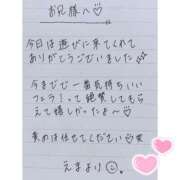 お兄様へ♡
今日は遊びに来てくれて
ありがとうございました☆
今までで一番気持ちいい
フェラ！って絶賛してもら
えて嬉しかったよ〜♡
攻めは任せてください♡
えまより☺